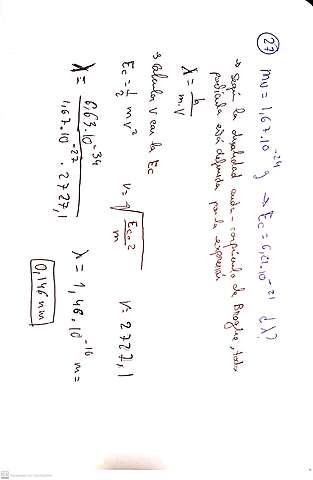 27) mn = 1,67·10^-24 g → Ec = 6,21·10^-21 ¿λ?
→ según la dualidad onda-corpúsculo de Broglie, toda
partícula está definida por la expresión
λ = h / m·v
→ calcular v con la Ec
Ec = 1/2 mv²   v = √(Ec·2 / m)   v = 2727,1
λ = 6,63·10^-34 / 1,67·10^-27 · 2727,1   λ = 1,46·10^-10 m =
0,146 nm